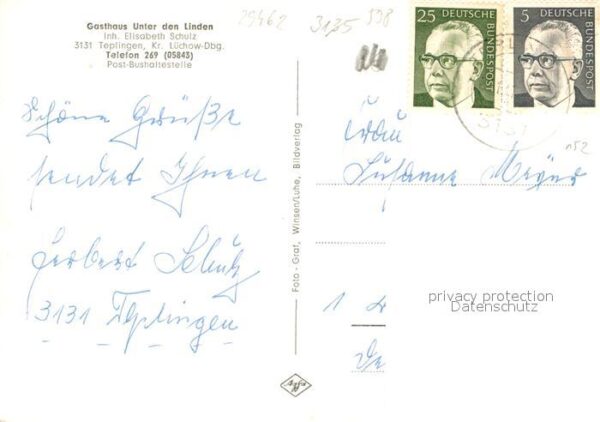 Gasthaus Unter den Linden
Inh. Elisabeth Schulz
3131 Teplingen, Kr. Lüchow-Dbg.
Telefon 269 (05843)
Post-Bushaltestelle
29462
3135
598
25 DEUTSCHE
BUNDESPOST
5 DEUTSCHE
BUNDESPOST
3131
152
Schöne Grüße
sendet Ihnen
Herbert Schulz
3131 Teplingen
Foto - Graf, Winsen/Luhe, Bildverlag
Frau
Susanne Meyer
1
privacy protection
Datenschutz
Agfa